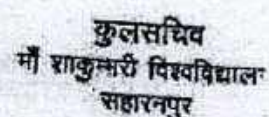 कुलसचिव
माँ शाकुम्भरी विश्वविद्यालय
सहारनपुर